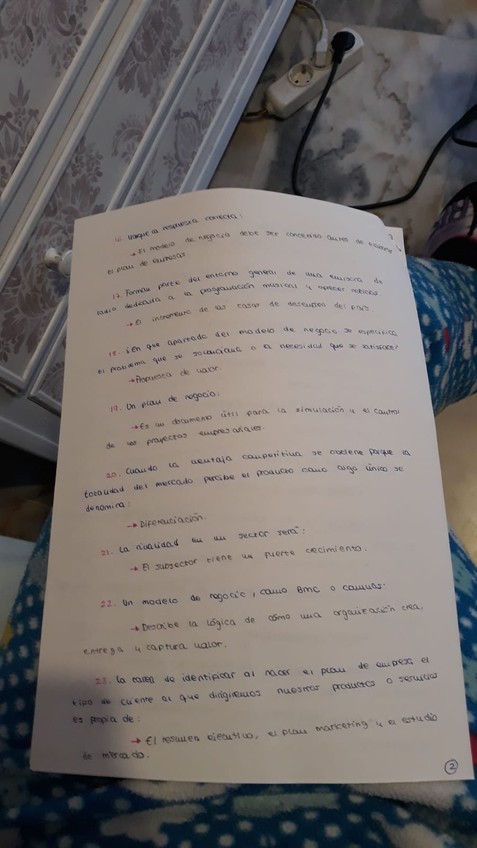 16. Marque la respuesta correcta:
→ El modelo de negocio debe ser concebido antes de
el plan de empresas.
17. Forman parte del entorno general de una emisora de
radio dedicada a la programación musical y
→ El incremento de las tasas de desempleo del país.
18. ¿En que apartado del modelo de negocio se especifica
el problema que se soluciona o la necesidad que se satisface?
→ Propuesta de valor.
19. Un plan de negocio:
→ Es un documento útil para la simulación y el control
de los proyectos empresariales.
20. Cuando la ventaja competitiva se obtiene porque la
totalidad del mercado percibe el producto como algo único se
denomina:
→ Diferenciación.
21. La rivalidad en un sector será:
→ El subsector tiene un fuerte crecimiento.
22. Un modelo de negocio, como BMC o canvas:
→ Describe la lógica de cómo una organización crea,
entrega y captura valor.
23. La tarea de identificar al hacer el plan de empresa el
tipo de cliente al que dirigiremos nuestros productos o servicios
es propia de:
→ El resumen ejecutivo, el plan marketing y el estudio
de mercado.
2